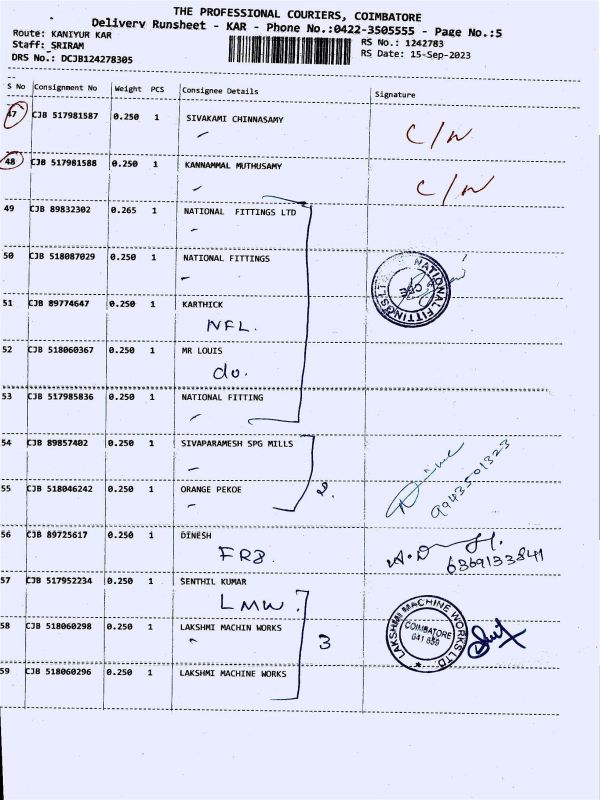 THE PROFESSIONAL COURIERS, COIMBATORE
Delivery Runsheet - KAR - Phone No.:0422-3505555 - Page No.:5
Route: KANIYUR KAR
RS No.: 1242783
Staff: SRIRAM
RS Date: 15-Sep-2023
DRS No.: DCJB124278305
S No Consignment No Weight PCS Consignee Details Signature
47 CJB 517981587 0.250 1 SIVAKAMI CHINNASAMY
C/N
48 CJB 517981588 0.250 1 KANNAMMAL MUTHUSAMY
C/N
49 CJB 89832302 0.265 1 NATIONAL FITTINGS LTD
50 CJB 518087029 0.250 1 NATIONAL FITTINGS
NATIONAL FITTINGS LTD
51 CJB 89774647 0.250 1 KARTHICK
NFL.
52 CJB 518060367 0.250 1 MR LOUIS
do.
53 CJB 517985836 0.250 1 NATIONAL FITTING
54 CJB 89857402 0.250 1 SIVAPARAMESH SPG MILLS
9943501323
55 CJB 518046242 0.250 1 ORANGE PEKOE
2.
56 CJB 89725617 0.250 1 DINESH
FRB.
6369133841
57 CJB 517952234 0.250 1 SENTHIL KUMAR
LMW.
58 CJB 518060298 0.250 1 LAKSHMI MACHIN WORKS
3
LAKSHMI MACHINE WORKS LTD
COIMBATORE
641 659
59 CJB 518060296 0.250 1 LAKSHMI MACHINE WORKS